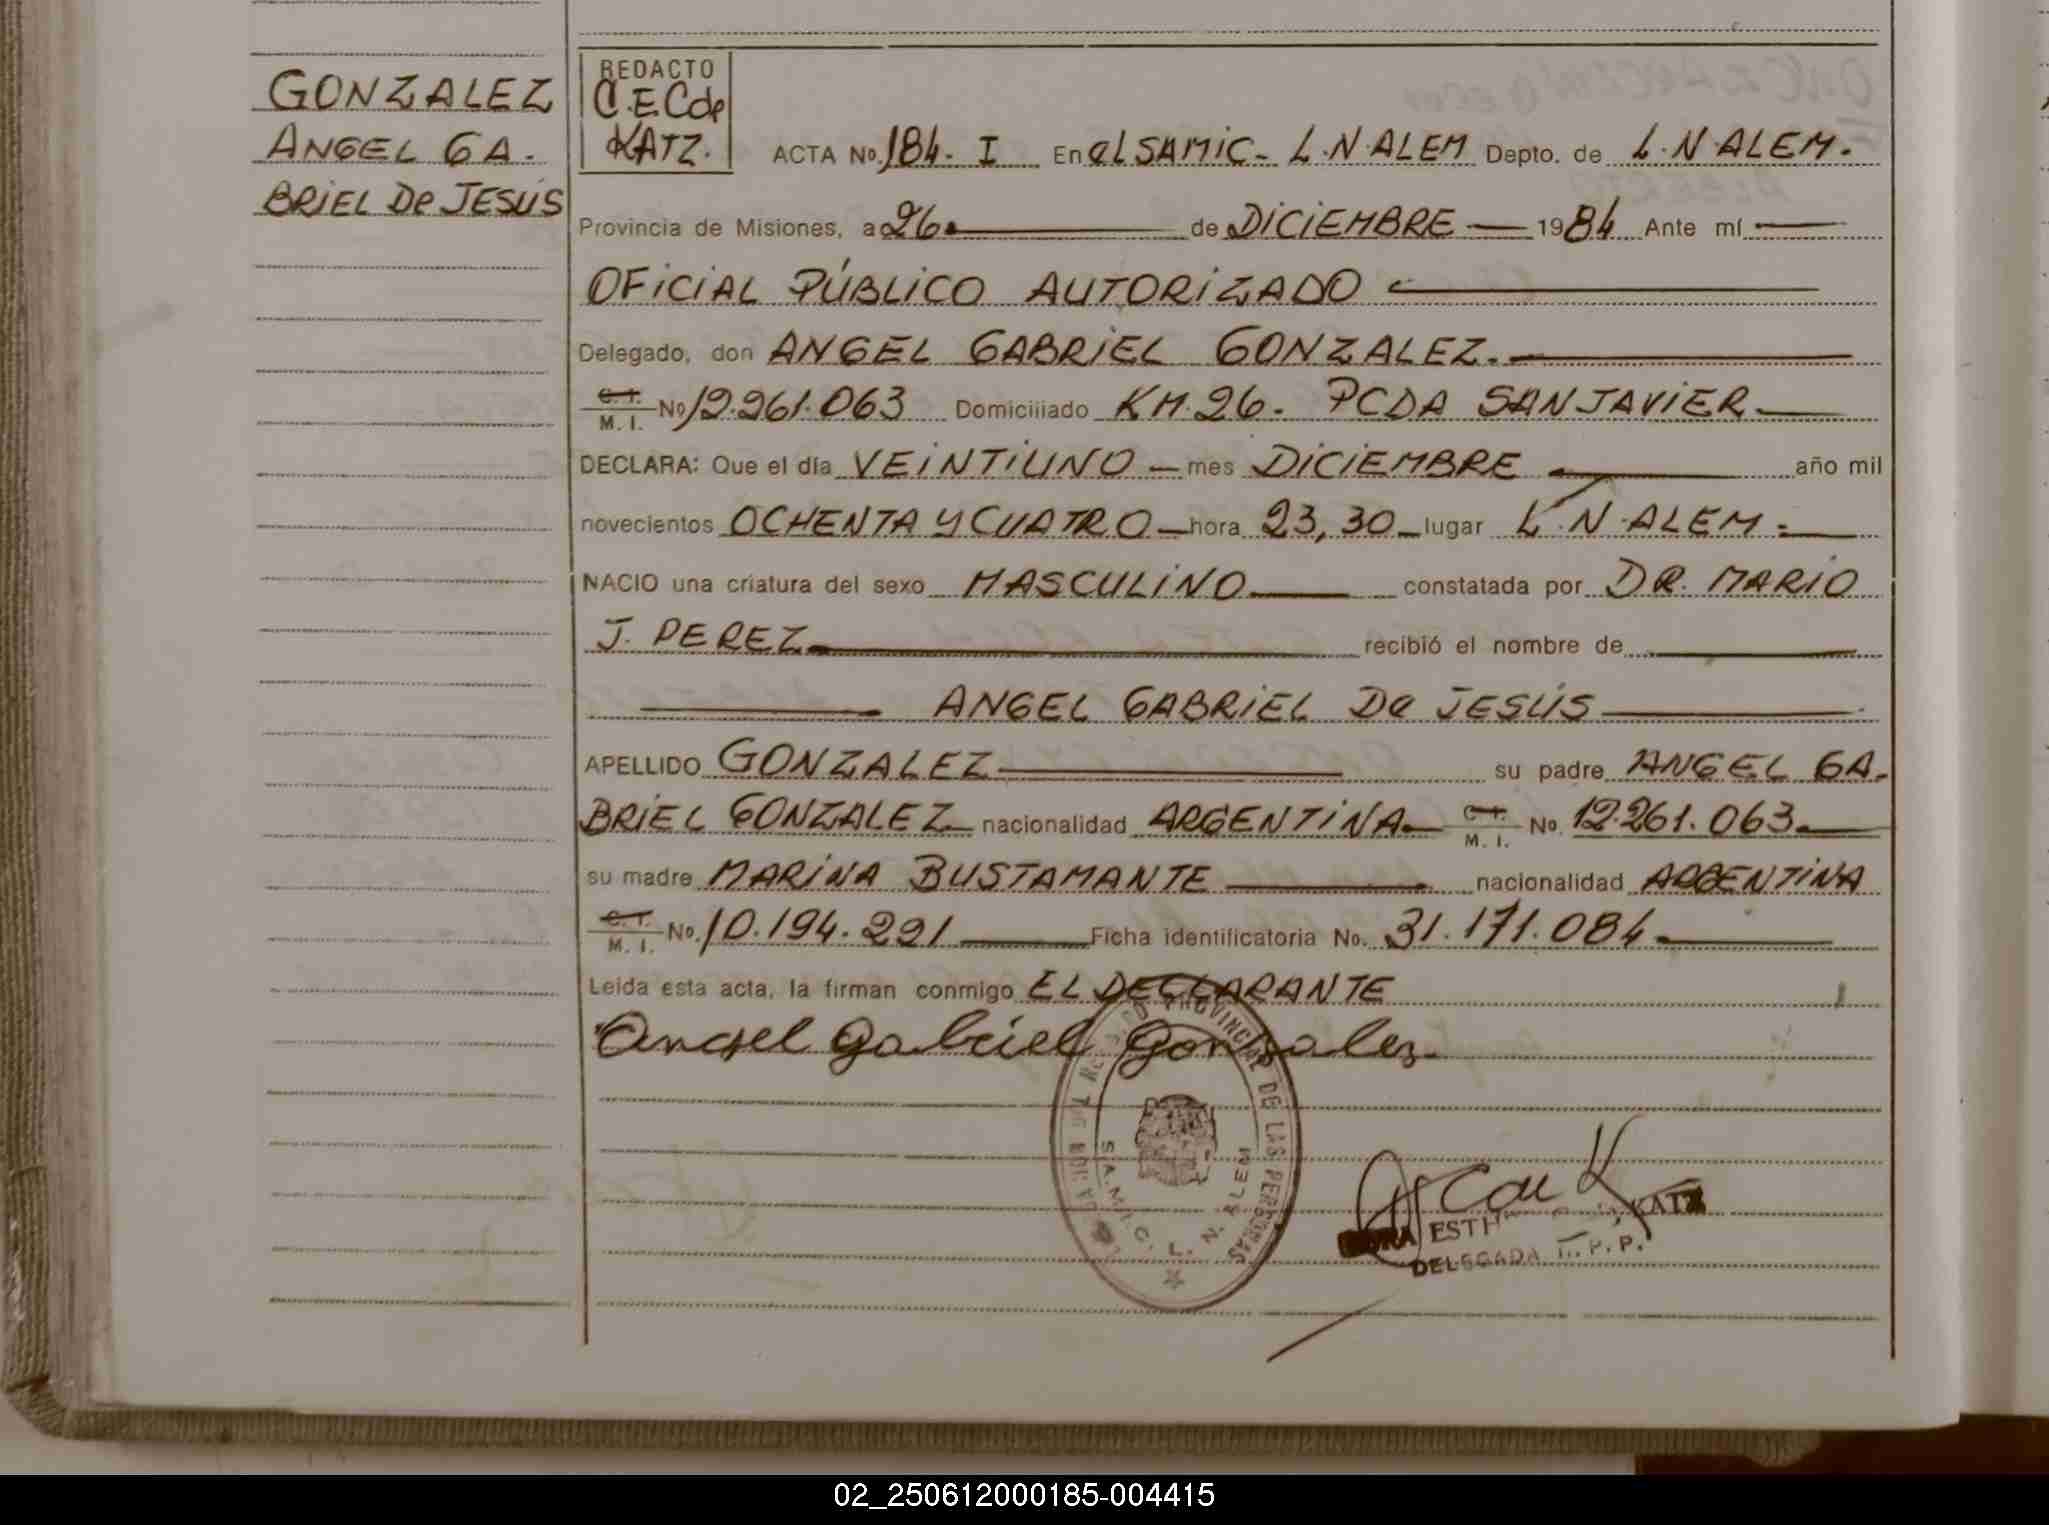 GONZALEZ
ANGEL GA-
BRIEL De JESÚS
REDACTO
C.E.C de
KATZ.
ACTA No. 184- I En el SAMIC- L.N.ALEM Depto. de L.N.ALEM.
Provincia de Misiones, a 26 de DICIEMBRE 1984 Ante mí
OFICIAL PÚBLICO AUTORIZADO
Delegado, don ANGEL GABRIEL GONZALEZ.
C.I. M. I. No 12.261.063 Domiciliado KM.26. PCDA SAN JAVIER
DECLARA: Que el día VEINTIUNO mes DICIEMBRE año mil
novecientos OCHENTA Y CUATRO hora 23,30 lugar L.N.ALEM.
NACIO una criatura del sexo MASCULINO constatada por DR. MARIO
J. PEREZ recibió el nombre de
ANGEL GABRIEL De JESÚS
APELLIDO GONZALEZ su padre ANGEL GA-
BRIEL GONZALEZ nacionalidad ARGENTINA C.I. M. I. No. 12.261.063.
su madre MARINA BUSTAMANTE nacionalidad ARGENTINA
C.I. M. I. No. 10.194.221 Ficha identificatoria No. 31.171.084
Leida esta acta, la firman conmigo EL DECLARANTE
Angel Gabriel Gonzalez
PROVINCIAL DE LAS PERSONAS
S.A.M.I.C. L. N. ALEM
KATZ
DELEGADA R.P.P.
02_250612000185-004415